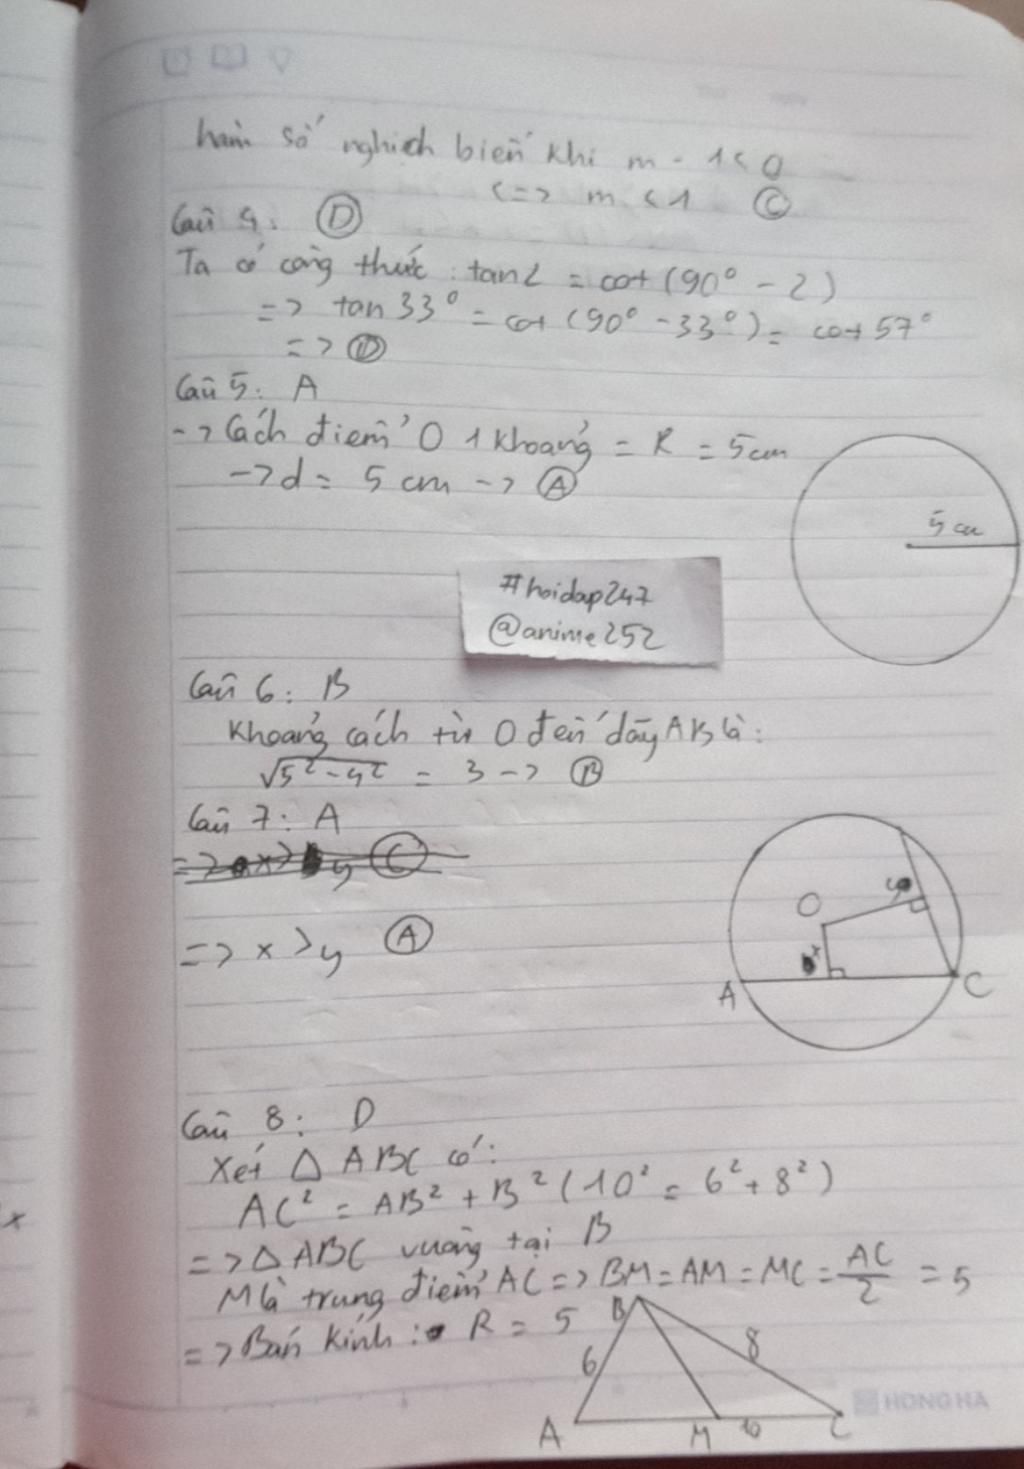 hàm số nghịch biến khi m - 1 < 0
<=> m < 1 Ⓒ
Câu 4: Ⓓ
Ta có công thức: tan2 = cot (90° - 2)
=> tan 33° = cot (90° - 33°) = cot 57°
=> Ⓓ
Câu 5: A
-> Cách điểm O 1 khoảng = R = 5cm
-> d = 5 cm -> Ⓐ
5 cm
#hoidap247
@anime252
Câu 6: B
Khoảng cách từ O đến dây AB là:
√5² - 4² = 3 -> Ⓑ
Câu 7: A
=> x > y Ⓒ
=> x > y Ⓐ
O
y
x
A
C
Câu 8: D
Xét △ ABC có:
AC² = AB² + B² (10² = 6² + 8²)
=> △ ABC vuông tại B
M là trung điểm AC => BM = AM = MC = AC/2 = 5
=> Bán kính: R = 5
B
6
8
A
M
10
C
x
HONG HA